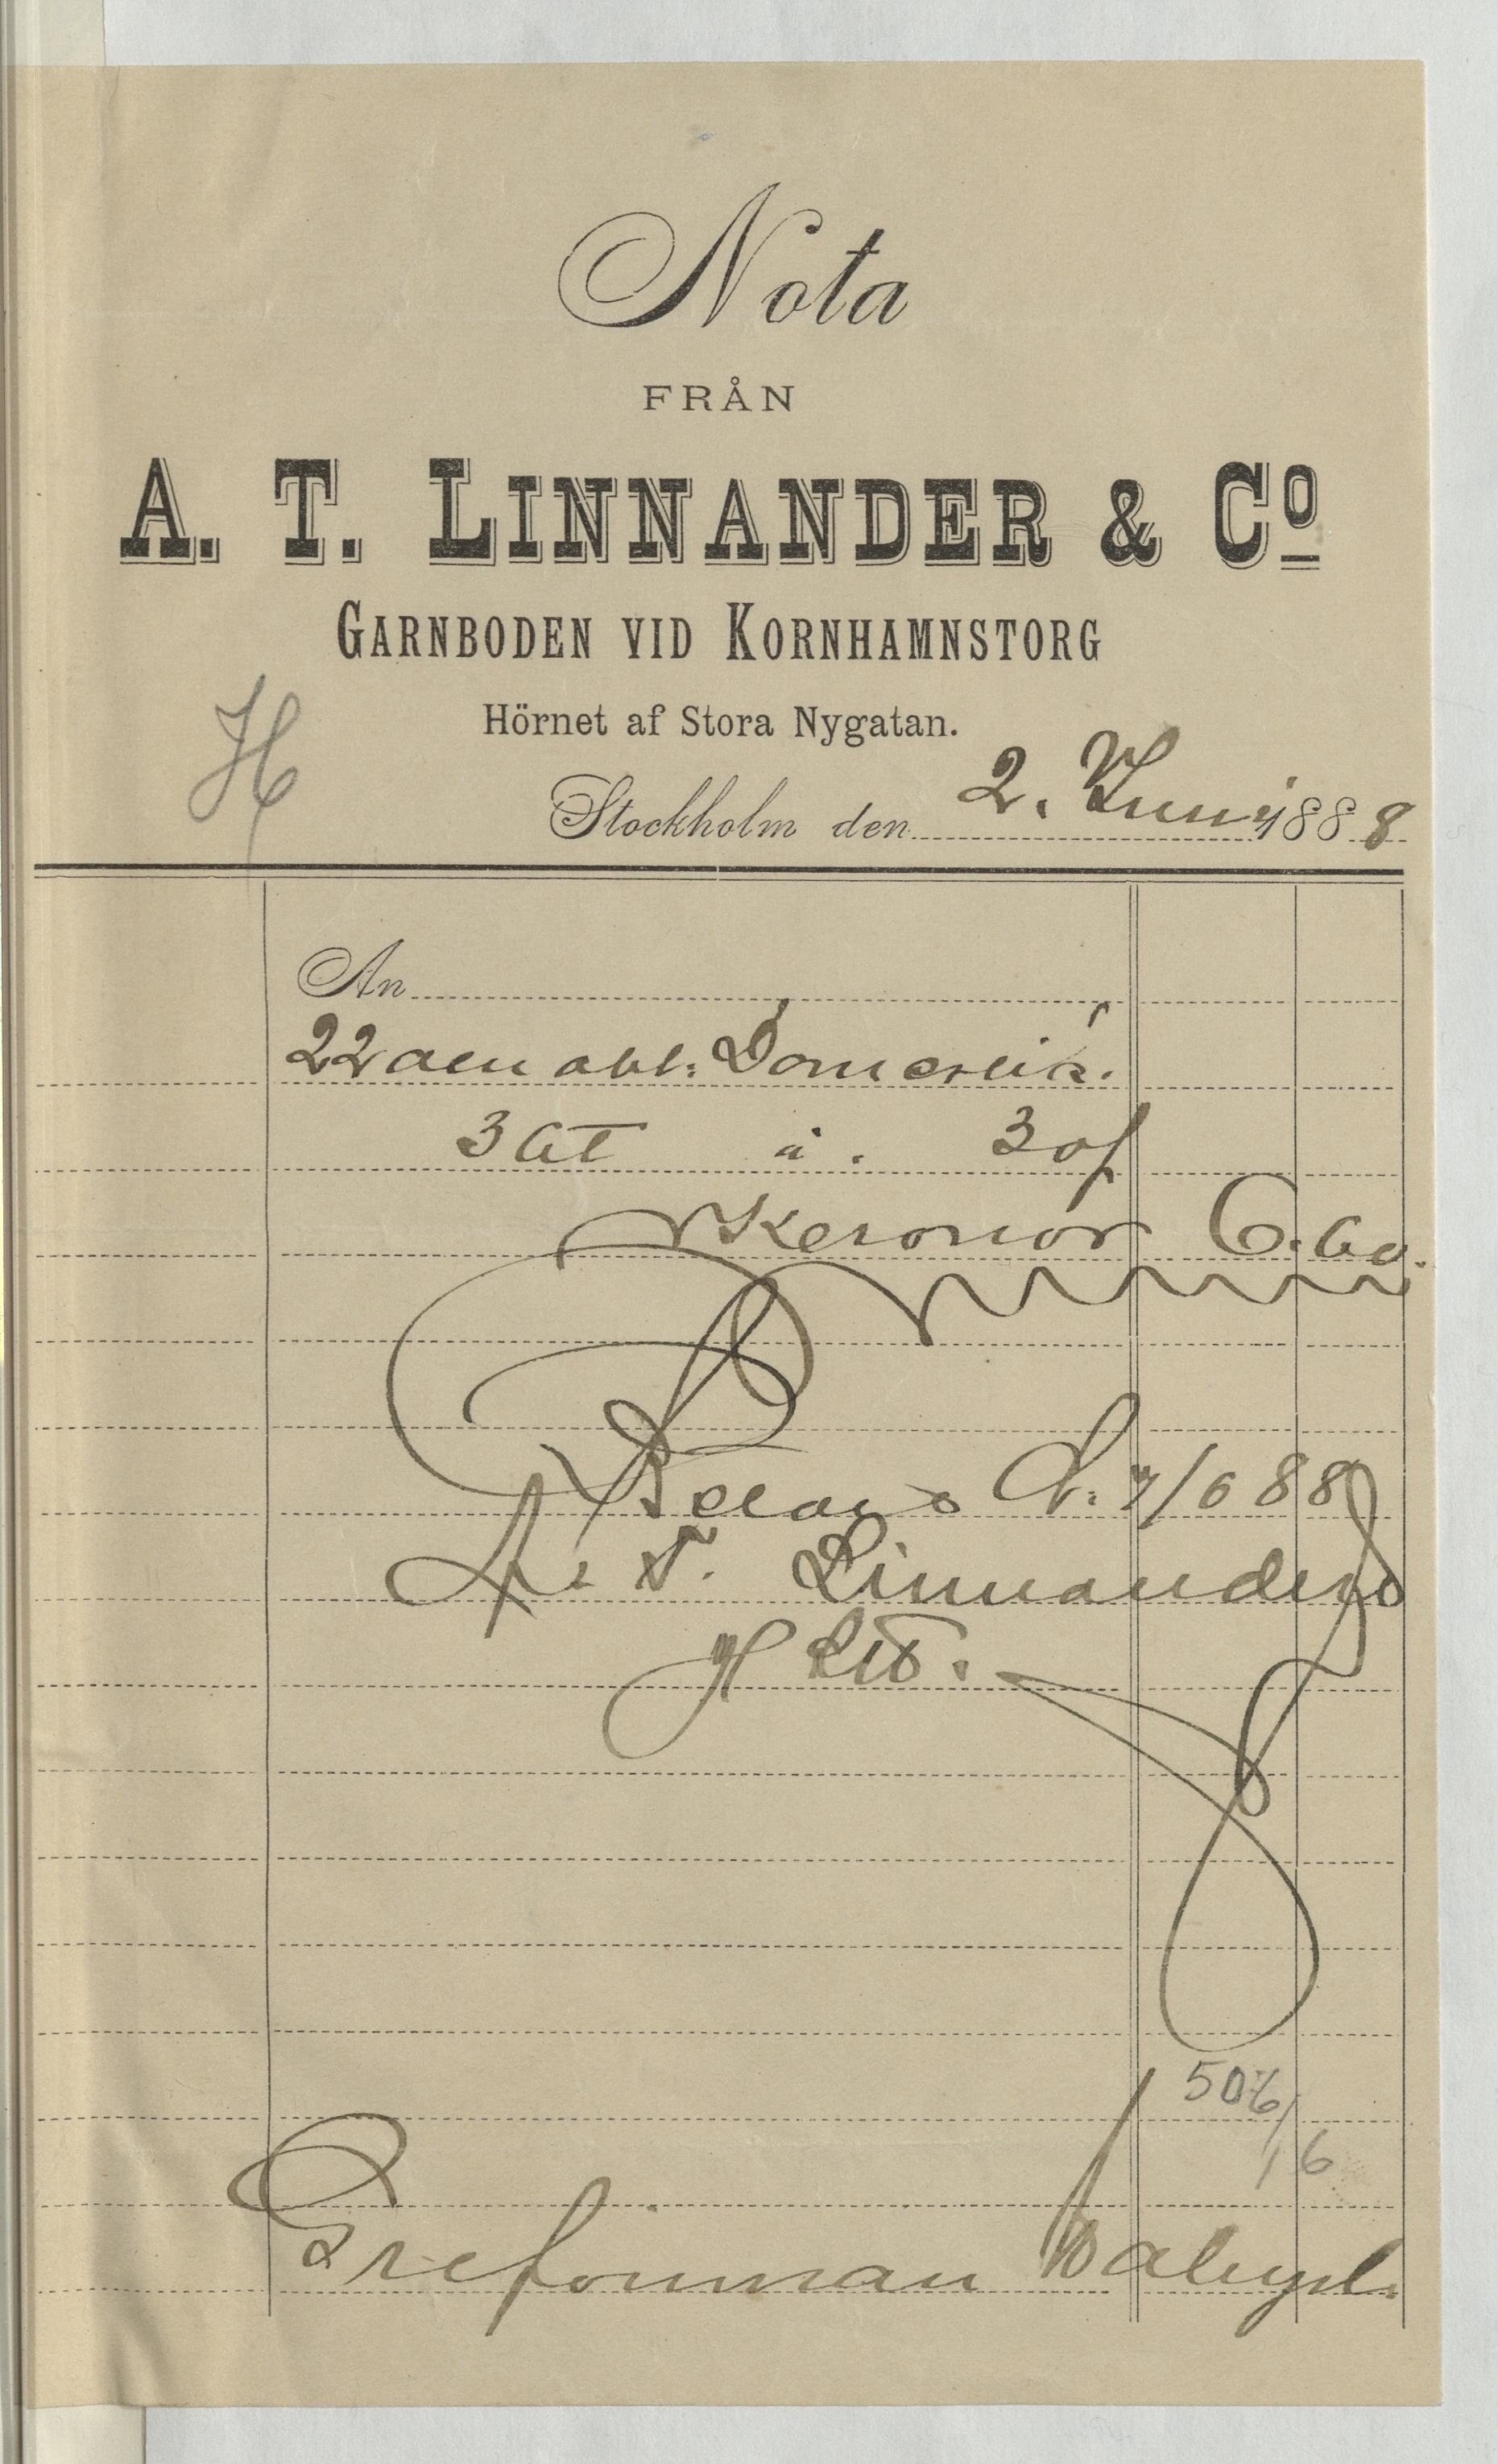 Nota
FRÅN
A. T. LINNANDER & Co
GARNBODEN VID KORNHAMNSTORG
Hörnet af Stora Nygatan.
H
Stockholm den 2. Juni 1888
An
22 aln obl: Domestik.
3 St à. 30f
Kronor 6.60.
Betalas d. 7/6 88
A. T. Linnander
& Co.
506/
/6
Grefvinnan Hallwyl.